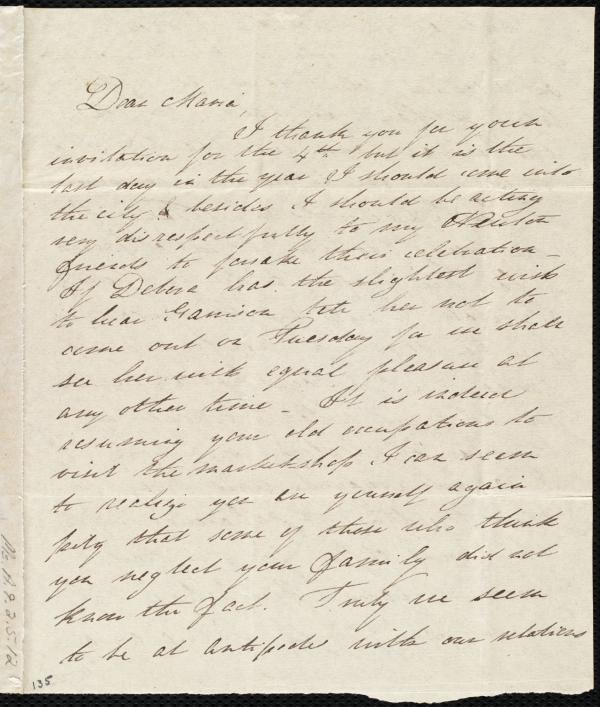 Dear Maria,
I thank you for your
invitation for the 4th but it is the
last day in the year I should come into
the city & besides I should be acting
very disrespectfully to my
friends to forsake their celebration –
If Debora has the slightest wish
to hear Garrison tell her not to
come out on Tuesday for we shall
see her with equal pleasure at
any other time – It is indeed
resuming your old occupations to
visit the marketshop I can seem
to realize you are yourself again
pity that some of those who think
you neglect your family did not
know the fact. Truly we seem
to be at antipodes with our relations
135
Ms.A.9.2.5.12